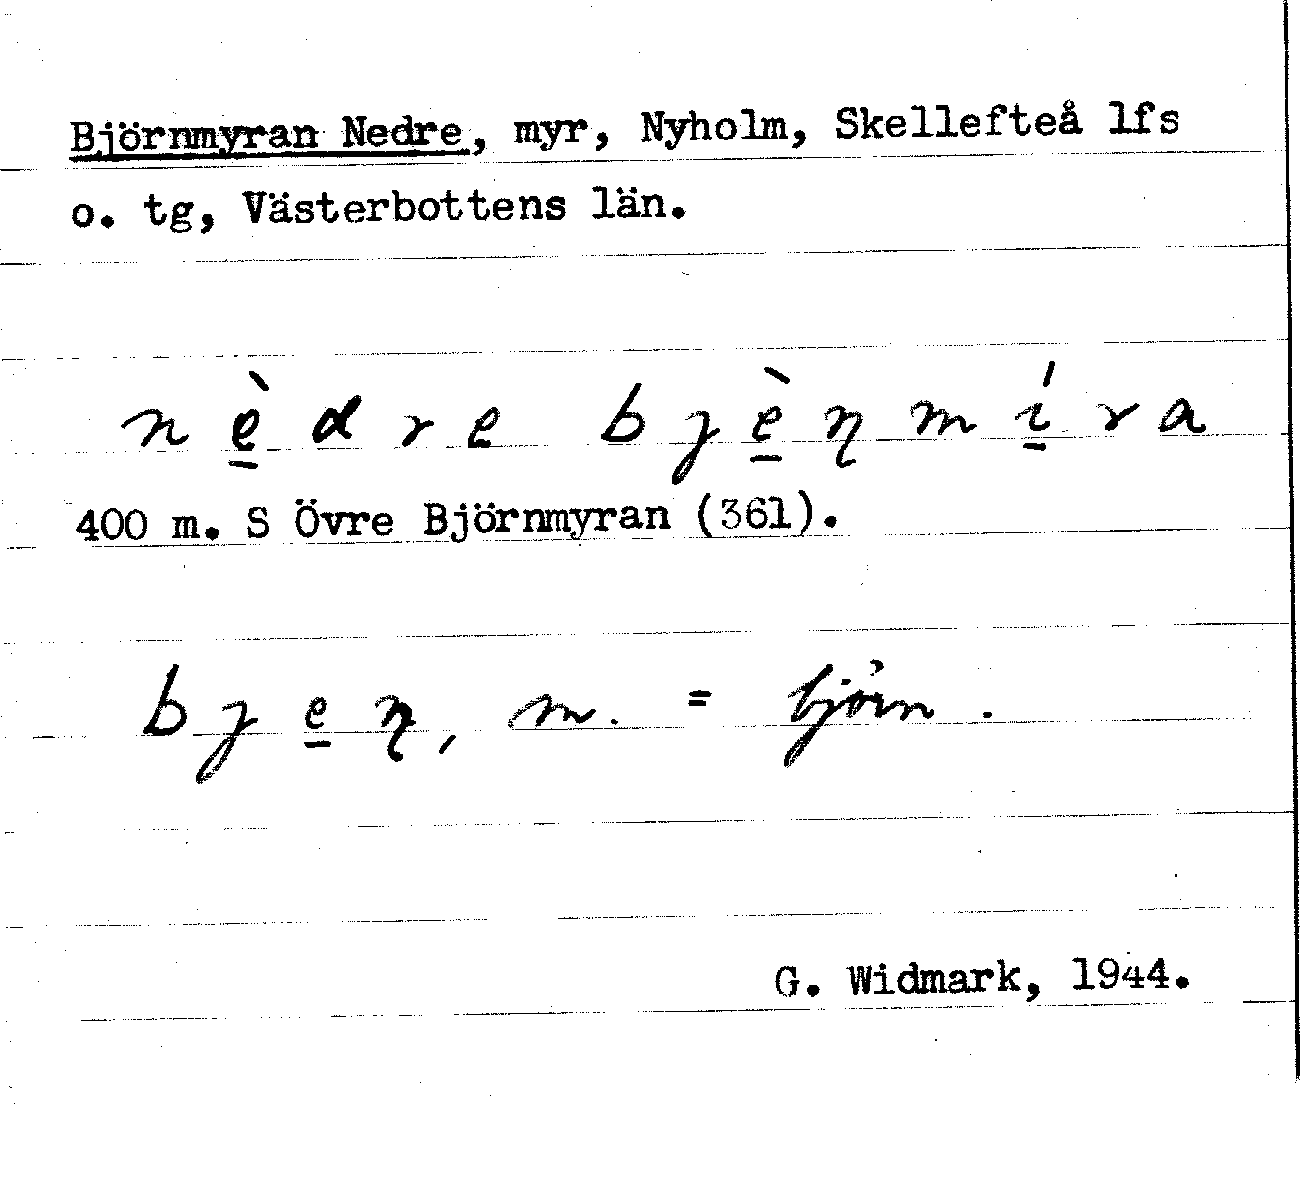 Björnmyran Nedre, myr, Nyholm, Skellefteå lfs
o. tg, Västerbottens län.
nè̱dre bjè̱ɳmí̱ra
400 m. S Övre Björnmyran (361).
bje̱ɳ, m. = björn.
G. Widmark, 1944.